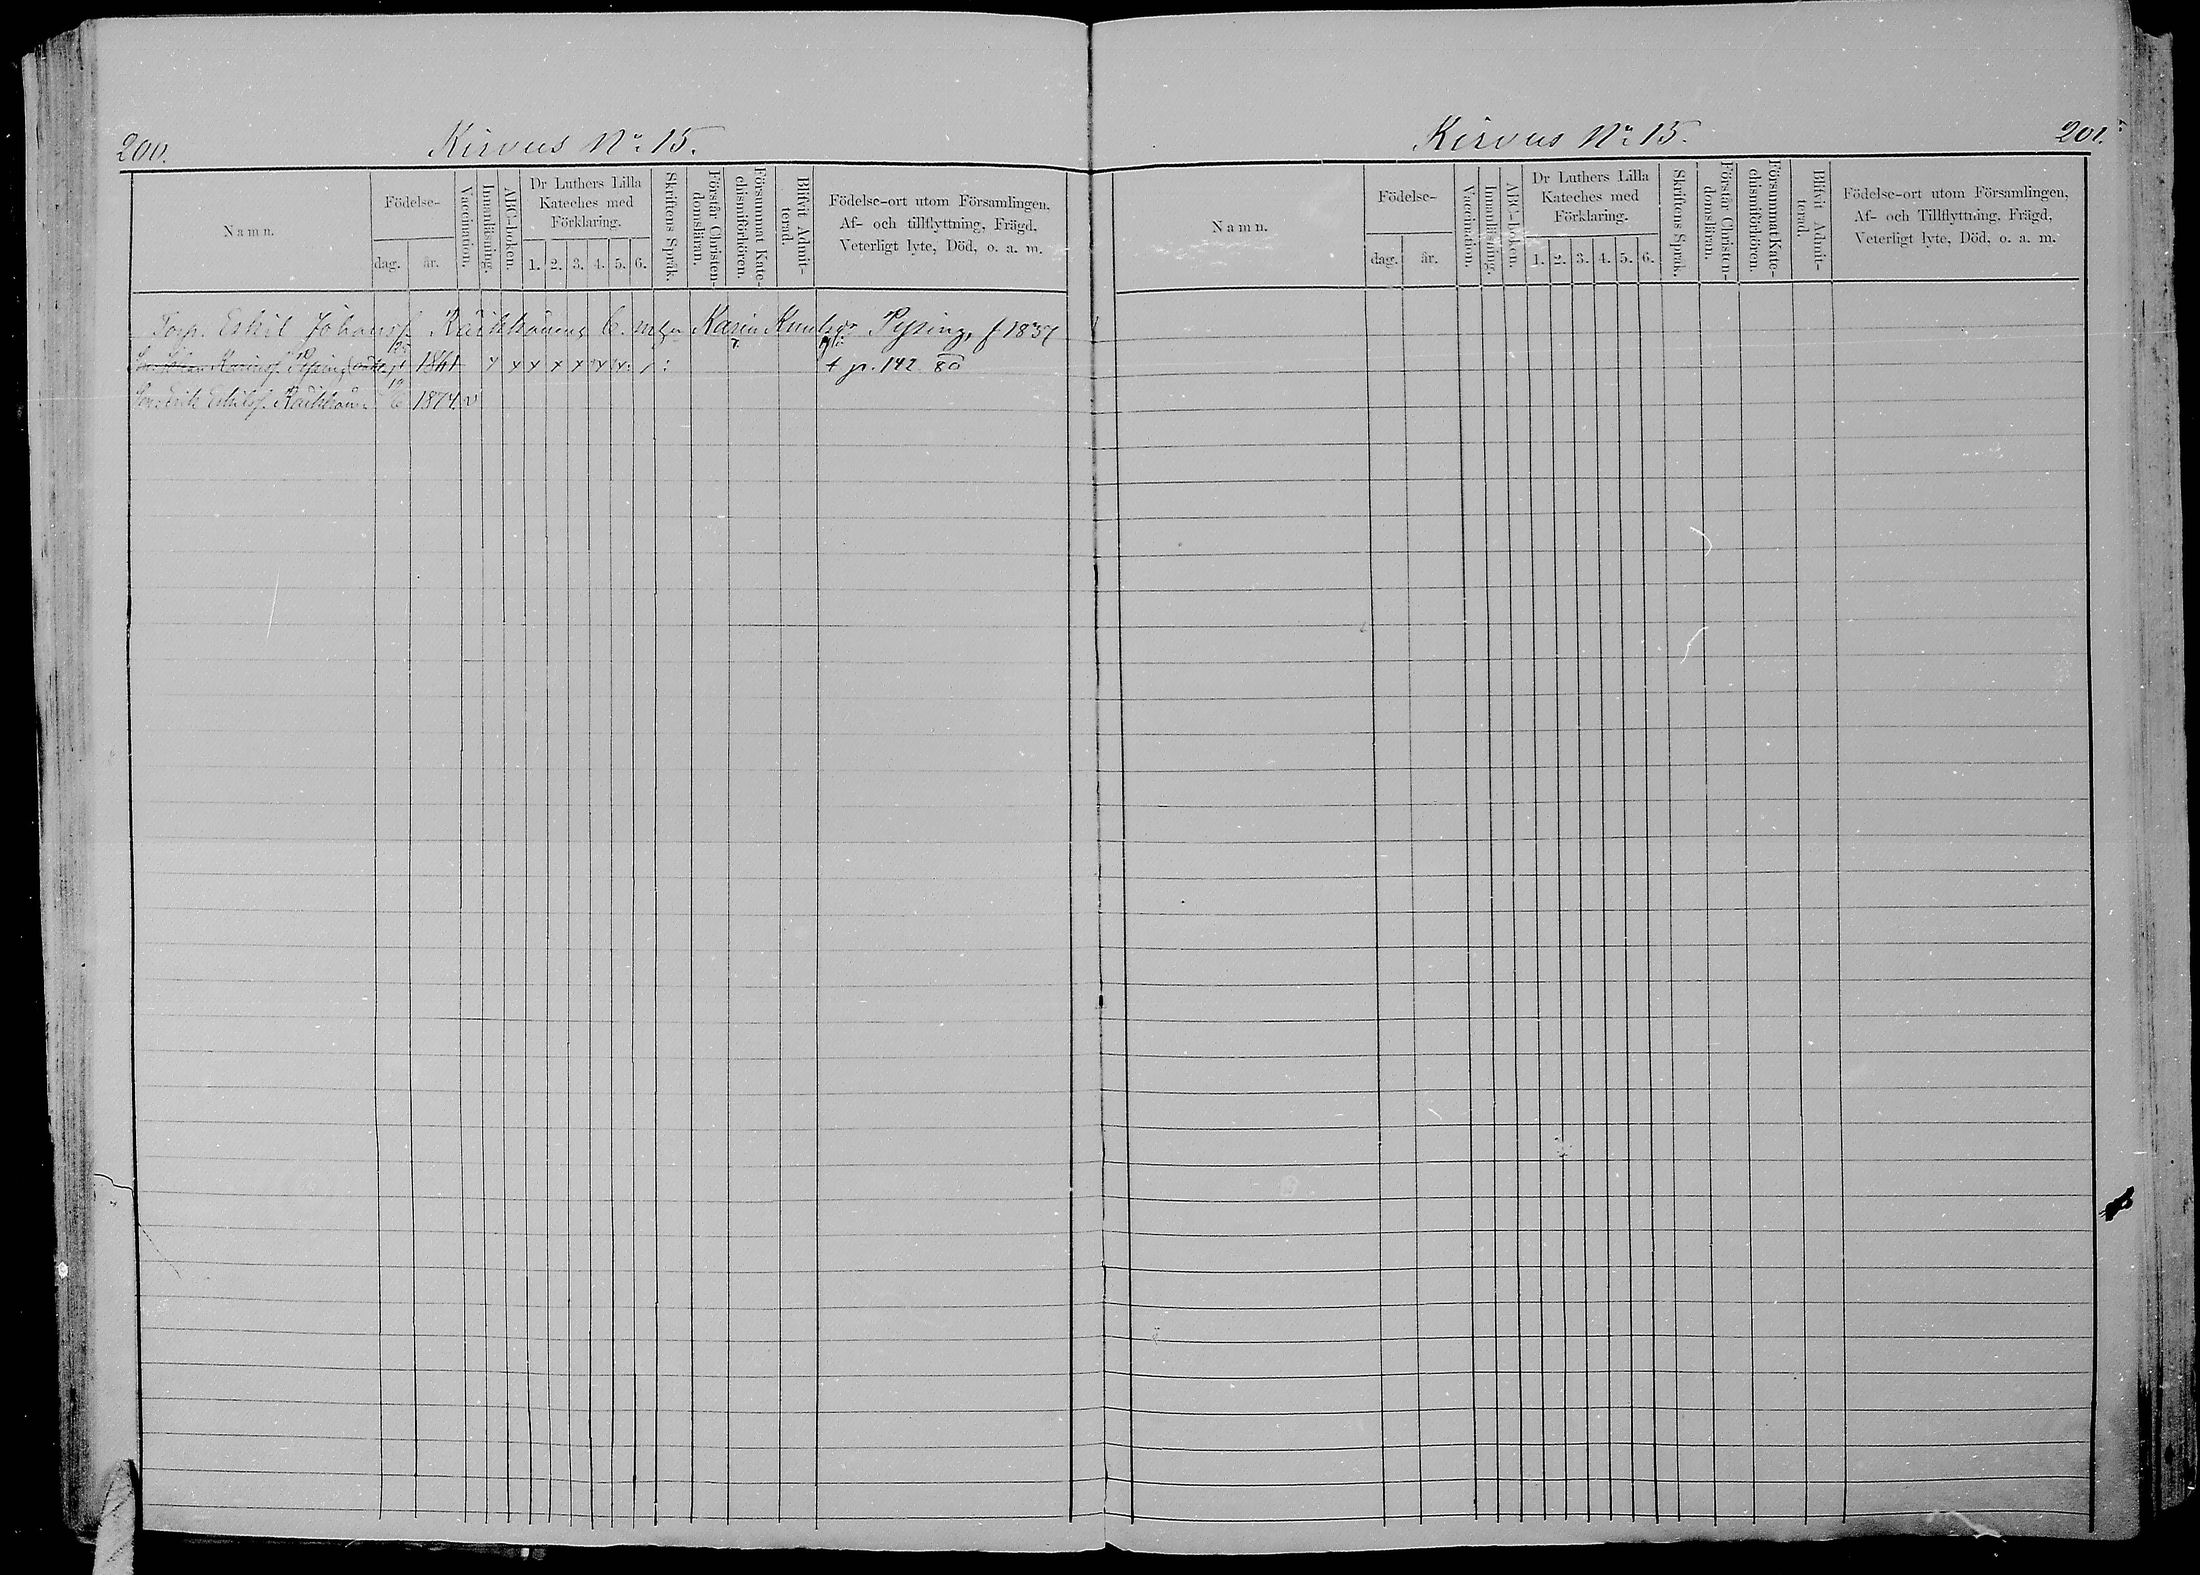 200.
Kirvus No 15.
Namn.
Födelse-
dag.
år.
Vaccination.
Innanläsning.
ABC-boken.
Dr Luthers Lilla
Kateches med
Förklaring.
1. 2. 3. 4. 5. 6.
Skriftens Språk.
Förstår Christen-
domsläran.
Försummat Kate-
chismiförhören.
Blifvit Admit-
terad.
Födelse-ort utom Församlingen,
Af- och tillflyttning, Frägd,
Veterligt lyte, Död, o. a. m.
Torp. Eskil Johansf. Räikkönens o. Karin Knutsdr Pysing, f 1837
Pysing 1861 x x x x x x x / : + p. 142 80
Son Erik Eskilsf. Räikkönen 1874 v
Kirvus No 15.
201.
Namn.
Födelse-
dag.
år.
Vaccination.
Innanläsning.
ABC-boken.
Dr Luthers Lilla
Kateches med
Förklaring.
1. 2. 3. 4. 5. 6.
Skriftens Språk.
Förstår Christen-
domsläran.
Försummat Kate-
chismiförhören.
Blifvit Admit-
terad.
Födelse-ort utom Församlingen,
Af- och Tillflyttning, Frägd,
Veterligt lyte, Död, o. a. m.